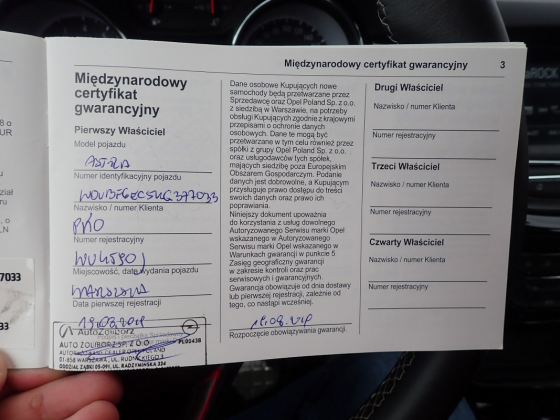 Międzynarodowy certyfikat gwarancyjny 3
Międzynarodowy
certyfikat
gwarancyjny
Pierwszy Właściciel
Model pojazdu
ASTRA
Numer identyfikacyjny pojazdu
Nazwisko / numer Klienta
PKO
Numer rejestracyjny
Miejscowość, data wydania pojazdu
WARSZAWA
Data pierwszej rejestracji
AutoŻoliborz
AUTO ŻOLIBORZ SP. Z O.O.
01-858 WARSZAWA, UL. RUDNICKIEGO
ODDZIAŁ ZĄBKI 05-091, UL. RADZYMIŃSKA 334
PL90438
Dane osobowe Kupujących nowe
samochody będą przetwarzane przez
Sprzedawcę oraz Opel Poland Sp. z o.o.
z siedzibą w Warszawie, na potrzeby
obsługi Kupujących zgodnie z krajowymi
przepisami o ochronie danych
osobowych. Dane te mogą być
przetwarzane w tym celu również przez
spółki z grupy Opel Poland Sp. z o.o.
oraz usługodawców tych spółek,
mających siedzibę poza Europejskim
Obszarem Gospodarczym. Podanie
danych jest dobrowolne, a Kupującym
przysługuje prawo dostępu do treści
swoich danych oraz prawo ich
poprawiania.
Niniejszy dokument upoważnia
do korzystania z usług dowolnego
Autoryzowanego Serwisu marki Opel
wskazanego w Autoryzowanego
Serwisu marki Opel wskazanego w
Warunkach gwarancji w punkcie 5
Zasięg geograficzny gwarancji
w zakresie kontroli oraz prac
serwisowych i gwarancyjnych.
Gwarancja obowiązuje od dnia dostawy
lub pierwszej rejestracji, zależnie od
tego, co nastąpi wcześniej.
Rozpoczęcie obowiązywania gwarancji.
Drugi Właściciel
Nazwisko / numer Klienta
Numer rejestracyjny
Trzeci Właściciel
Nazwisko / numer Klienta
Numer rejestracyjny
Czwarty Właściciel
Nazwisko / numer Klienta
Numer rejestracyjny
7033
33